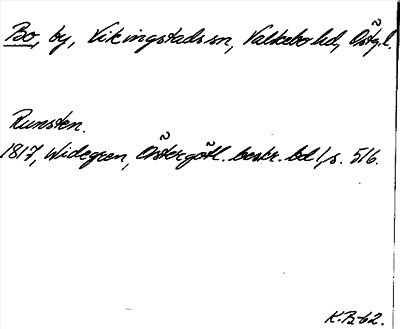 Bo, by, Vikingstads sn, Valkebo hd, Östg.l.
Runsten.
1817, Widegren, Östergötl. beskr. bd 1, s. 516.
K.B-62.